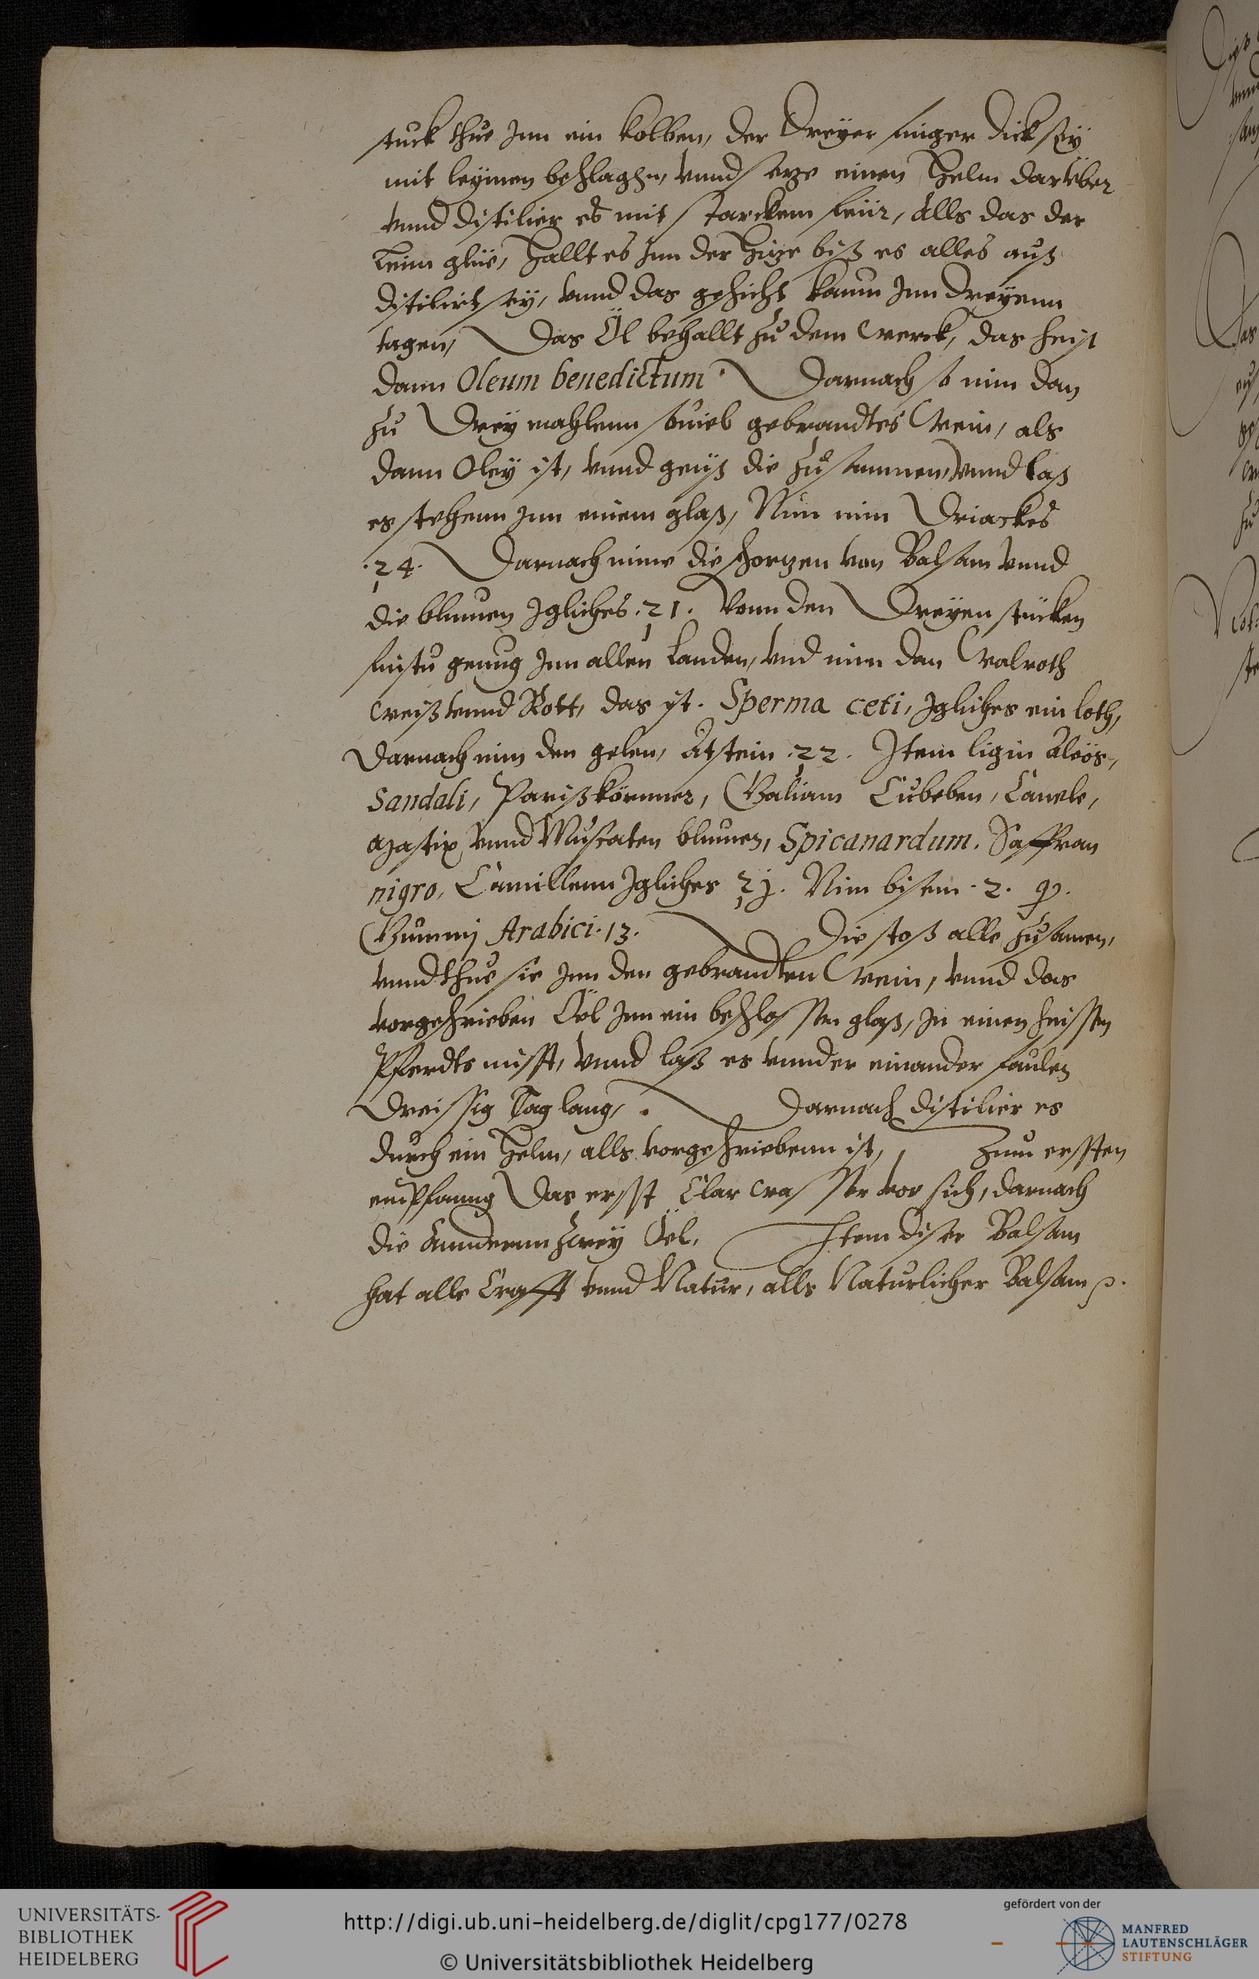 stuck thue Jnn ein kolben, der Dreyer finger dick seӱ
mit leymen beschlaghn, vnnd setze einen Helm darüber
vnnd distilier es mit starckem feür, Alls das der
leim glüe, Hallt es Jnn der Hitze biß es alles auß
distiliert seӱ, vnnd das geschicht kaum Jnn dreyenn
tagen, Das Öl behallt zu dem werck, das heist
dann Oleum benedictum. Darnach so nim dan
zu Dreӱ mahlenn souiel gebrandtes wein, als
dann Oleӱ ist, vnnd geuß die zusammen, vnnd laß
es stehenn Jnn einem glaß, Nun nim Driackes
.ʒ4. Darnach nime die von Balsam vnnd
die blumen Jgliches .ʒ1. Vonn den Dreyen stücken
finstu genug Jnn allen Landen, vnd nim dan walroth
weiß vnnd Rott, das ist. Sperma ceti, Jgliches ein loth,
Darnach nim den gelen, Atstein .ʒ2. Jtem ligin Aloes,
Sandali, Parißkörnner, Galiam Cubeben, Canele,
Mastix, vnnd Muscaten blumen, Spicanardum. Saffran
nigro, Camillenn Jgliches ʒj. Nim bisem .2. gr.
Gummj Arabici .13. Die stoß alle zusamen,
vnnd thue sie Jnn den gebrandten wein, vnnd das
vorgeschrieben Öel Jnn ein beschlossen glaß, Jn einen heissen
Pferdts misst, vnnd laß es vnnder einander faulen
Dreissig Tag lang, . Darnach distilier es
durch ein Helm, alls vorgeschriebenn ist, Zum erssten
empfanng Das ersst Clar wasser vor sich, darnach
die Anndernn zweӱ Öel, Jtem diser Balsam
hat alle Crafft vnnd Natur, alls Naturlicher Balsam
UNIVERSITÄTS-
BIBLIOTHEK
HEIDELBERG
http://digi.ub.uni-heidelberg.de/diglit/cpg177/0278
© Universitätsbibliothek Heidelberg
gefördert von der
MANFRED
LAUTENSCHLÄGER
STIFTUNG